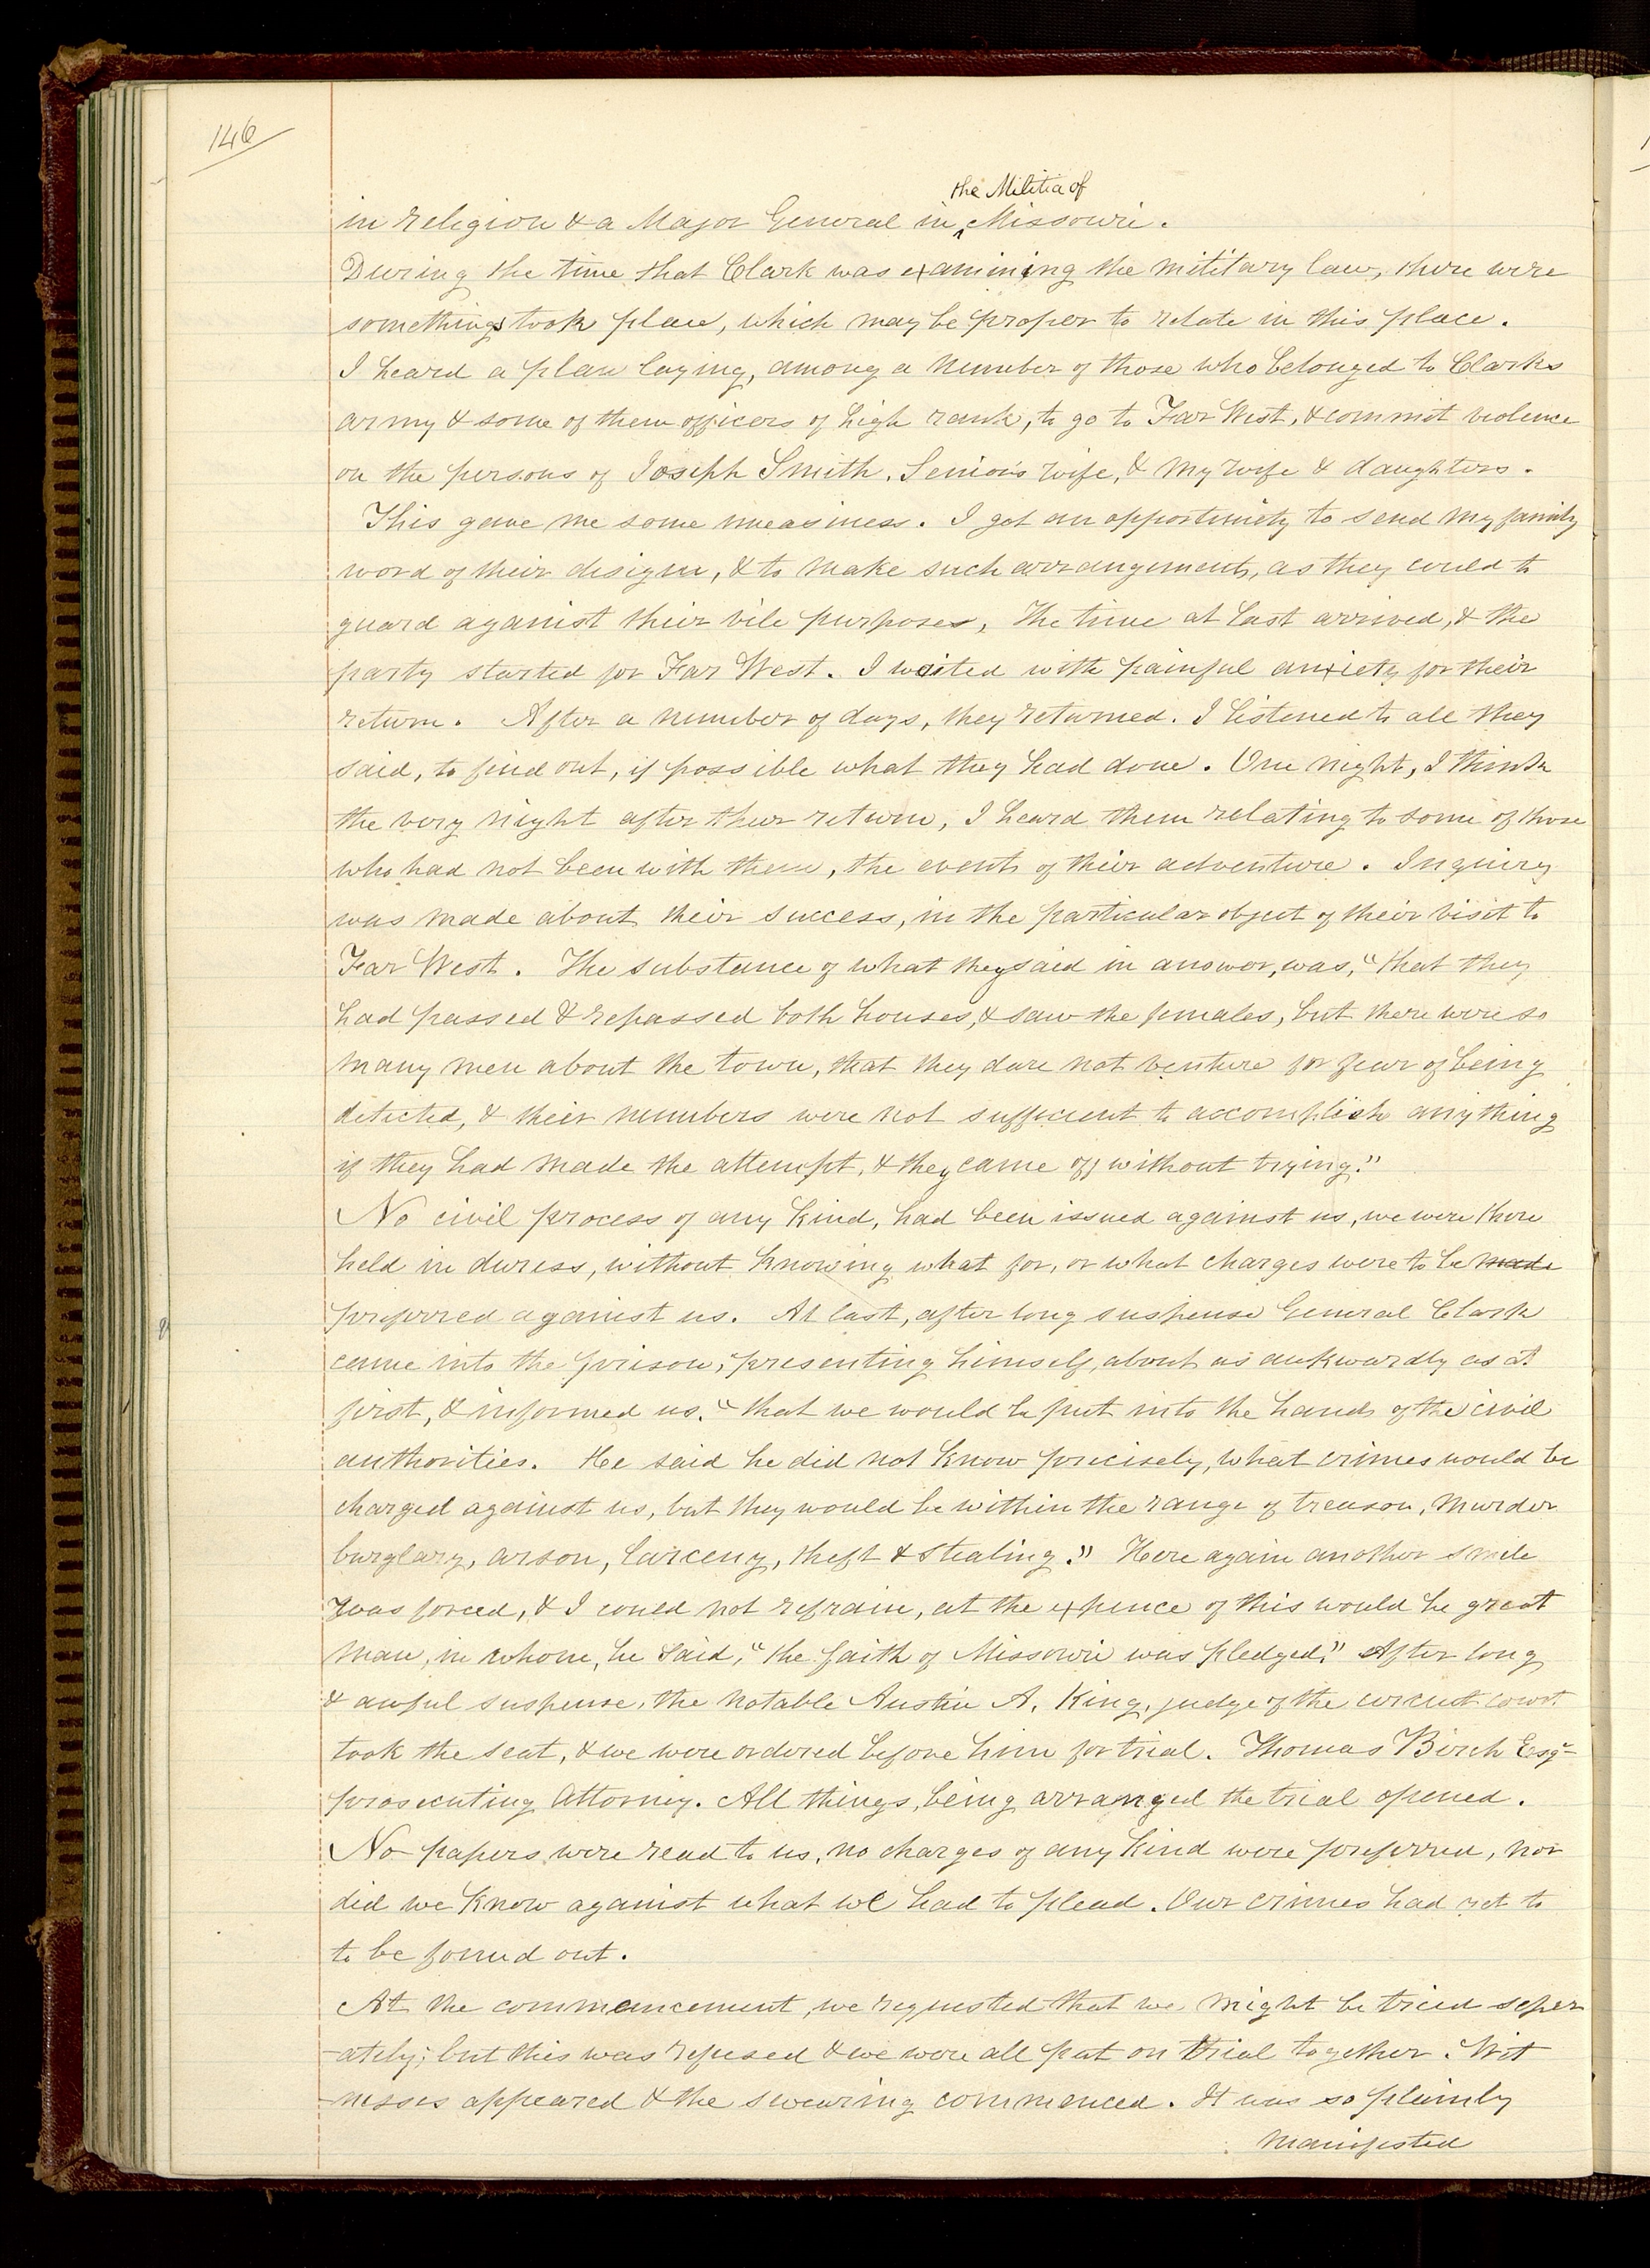 146
the Militia of
in religion & a Major General in ^ Missouri.
During the time that Clark was examining the military law, there were
somethings took place, which may be proper to relate in this place.
I heard a plan laying, among a number of those who belonged to Clarks
army & some of them officers of high rank, to go to Far West, & commit violence
on the persons of Joseph Smith, Senior's wife, & my wife & daughters.
This gave me some uneasiness. I got an opportunity to send my family
word of their design, & to make such arrangements, as they could to
guard against their vile purposes, The time at last arrived, & the
party started for Far West. I waited with painful anxiety for their
return. After a number of days, they returned. I listened to all they
said, to find out, if possible what they had done. One night, I think
the very night after their return, I heard them relating to some of those
who had not been with them, the events of their adventure. Inquiry
was made about their success, in the particular object of their visit to
Far West. The substance of what they said in answer, was, "that they
had passed & repassed both houses, & saw the females, but there were so
many men about the town, that they dare not venture for fear of being
detected, & their numbers were not sufficient to accomplish any thing
if they had made the attempt, & they came off without trying."
No civil process of any kind, had been issued against us, we were there
held in duress, without knowing what for, or what charges were to be made
preferred against us. At last, after long suspense General Clark
came into the prison, presenting himself, about as aukwardly as at
first, & informed us, "that we would be put into the hands of the civil
authorities. He said he did not know precisely, what crimes would be
charged against us, but they would be within the range of treason, murder
burglary, arson, larceny, theft & stealing." Here again another smile
was forced, & I could not refrain, at the expence of this would be great
man, in whom, he said, "the faith of Missouri was pledged." After long
& awful suspense, the notable Austin A. King, judge of the circuit court
took the seat, & we were ordered before him for trial. Thomas Birch Esqr
prosecuting Attorney. All things, being arranged the trial opened.
No papers were read to us, no charges of any kind were preferred, nor
did we know against what we had to plead. Our crimes had yet to
to be found out.
At the commencement, we requested that we might be tried seper
-ately; but this was refused & we were all put on trial together. Wit
-nesses appeared & the swearing commenced. It was so plainly
manifested